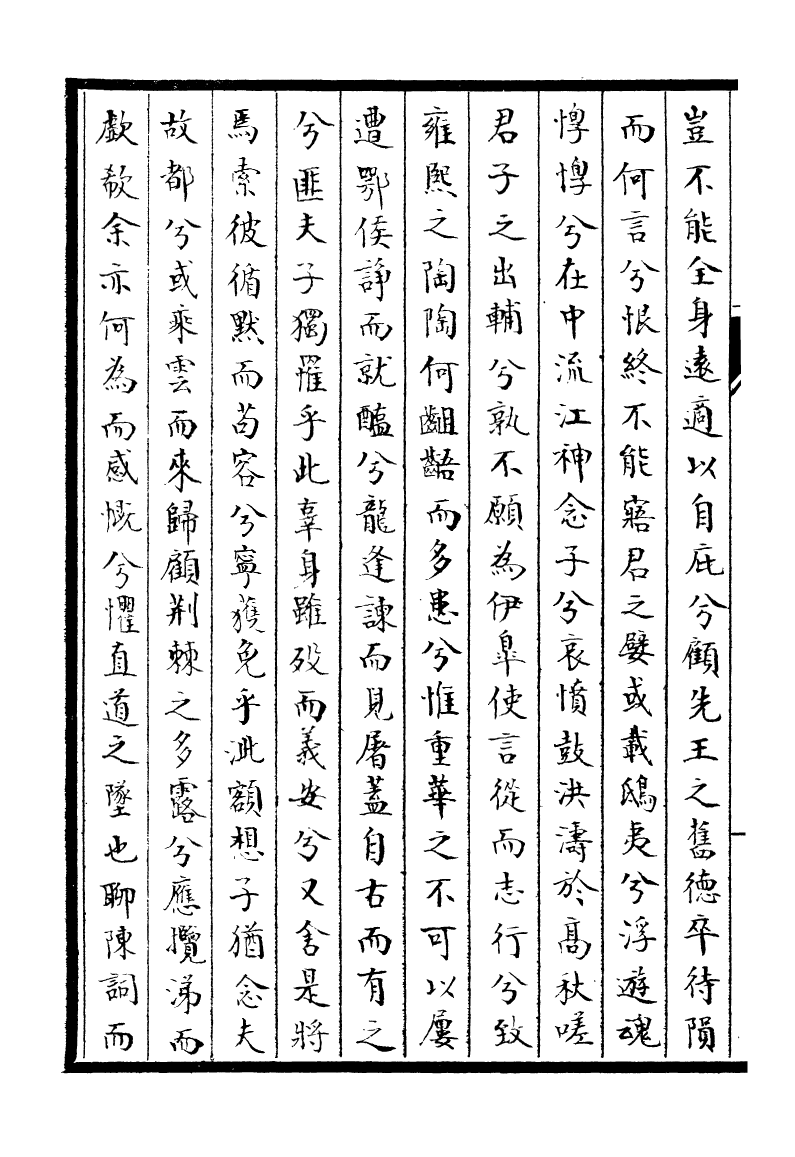 豈不能全身遠適以自庇兮顧先王之舊德卒待隕
而何言兮恨終不能寤君之嬖或載鴟夷兮浮遊魂
惸惸兮在中流江神念子兮哀憤鼓洪濤於高秋嗟
君子之出輔兮孰不願為伊臯使言從而志行兮致
雍熙之陶陶何齟齬而多患兮惟重華之不可以屢
遭鄂侯諍而就醢兮龍逢諫而見屠蓋自古而有之
兮匪夫子獨罹乎此辜身雖歿而義安兮又舍是將
焉索彼循默而苟容兮寧獲免乎泚額想子猶念夫
故都兮或乘雲而來歸顧荆棘之多露兮應攬涕而
歔欷余亦何為而感慨兮懼直道之墜也聊陳詞而